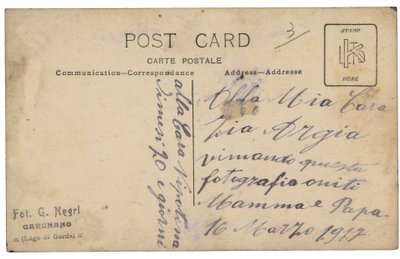 POST CARD
CARTE POSTALE
Communication—Correspondance
Address—Adresse
STAMP
HERE
3/
alla Cara Nipotina
di mesi 20 e giorni
Alla Mia Cara
Zia Argia
questa
fotografia oniti
Mamma e Papa
16 Marzo 1917
Fot. G. Negri
GARGNANO
(Lago di Garda)